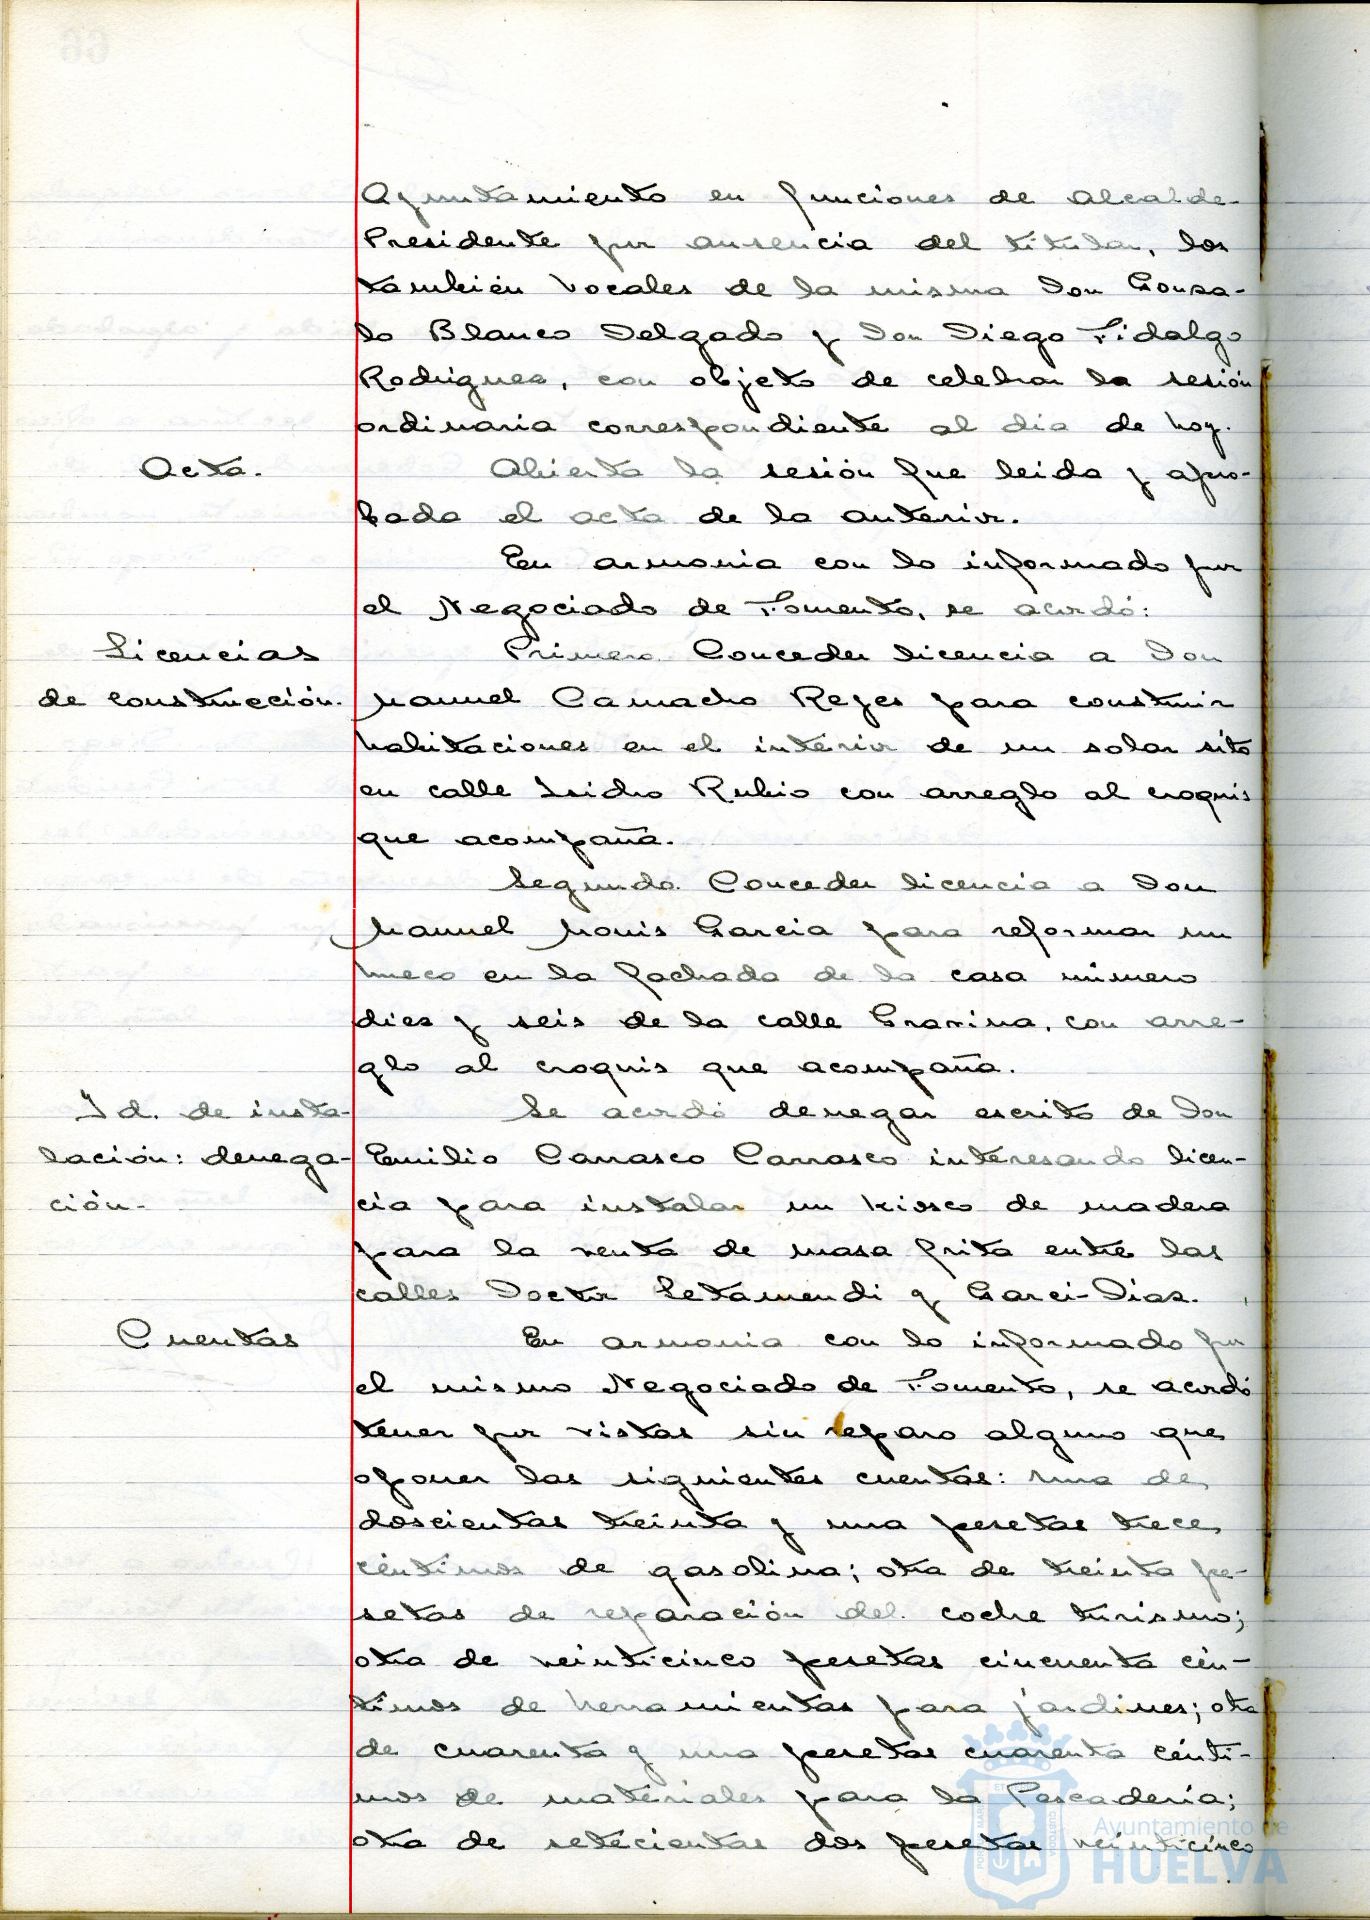 Ayuntamiento en funciones de Alcalde-
Presidente por ausencia del titular, los
también Vocales de la misma Don Gonza-
lo Blanco Delgado y Don Diego Fidalgo
Rodriguez, con objeto de celebrar la sesión
ordinaria correspondiente al dia de hoy.
Acta.
Abierta la sesión fue leida y apro-
bada el acta de la anterior.
En armonia con lo informado por
el Negociado de Fomento, se acordó:
Licencias
de construcción.
Primero. Conceder licencia a Don
Manuel Camacho Reyes para construir
habitaciones en el interior de un solar sito
en calle Isidro Rubio con arreglo al croquis
que acompaña.
Segundo. Conceder licencia a Don
Manuel Monis Garcia para reformar un
hueco en la fachada de la casa número
diez y seis de la calle Gravina, con arre-
glo al croquis que acompaña.
Id. de insta-
lación: denega-
ción.
Se acordó denegar escrito de Don
Emilio Carrasco Carrasco interesando licen-
cia para instalar un kiosco de madera
para la venta de masa frita entre las
calles Doctor Letamendi y Garci-Diaz.
Cuentas
En armonia con lo informado por
el mismo Negociado de Fomento, se acordó
tener por vistas sin reparo alguno que
oponer las siguientes cuentas: una de
doscientas treinta y una pesetas trece
céntimos de gasolina; otra de treinta pe-
setas de reparación del coche turismo;
otra de veinticinco pesetas cincuenta cén-
timos de herramientas para jardines; otra
de cuarenta y una pesetas cuarenta cénti-
mos de materiales para la Pescaderia;
otra de setecientas dos pesetas veinticinco
Ayuntamiento de
HUELVA